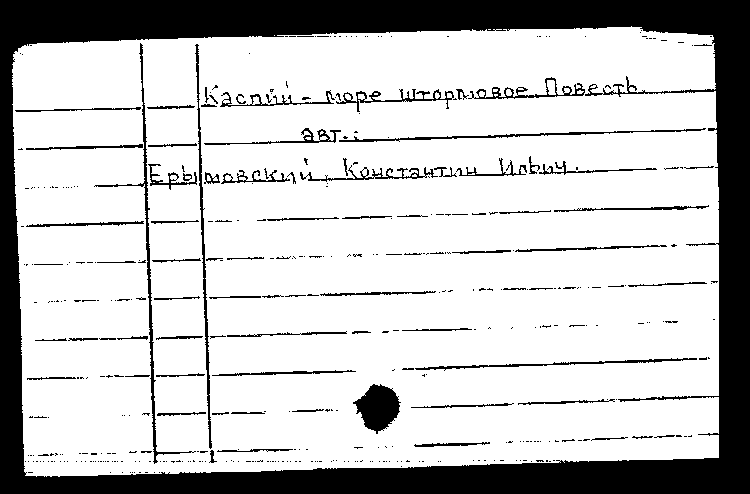 Каспий - море штормовое. Повесть.
авт.:
Ерымовский, Константин Ильич.